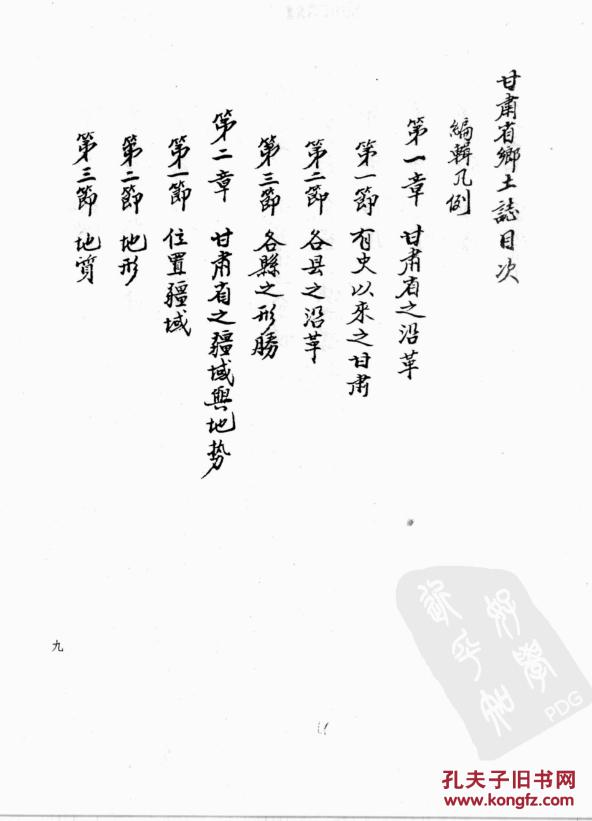 甘肅省鄉土誌目次
編輯凡例
第一章 甘肅省之沿革
第一節 有史以來之甘肅
第二節 各县之沿革
第三節 各縣之形勝
第二章 甘肅省之疆域與地势
第一節 位置疆域
第二節 地形
第三節 地质
九
好學
PDG
孔夫子旧书网
kongfz.com